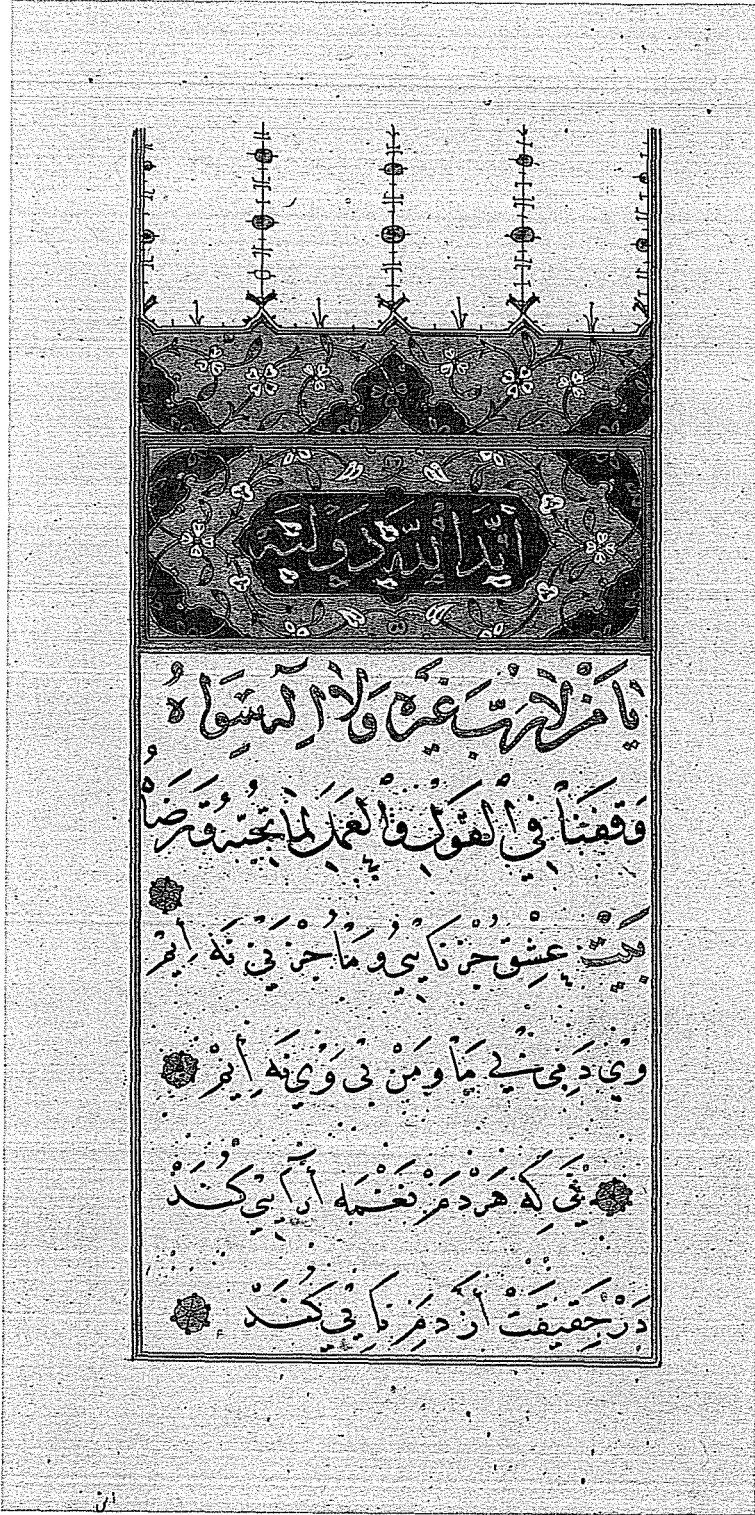 أَيَّدَ اللّٰهُ دَوْلَتَهُ
يَا مَنْ لَا رَبَّ غَيْرُهُ وَلَا إِلٰهَ سِوَاهُ
وَفِّقْنَا فِي الْقَوْلِ وَالْعَمَلِ لِمَا تُحِبُّهُ وَتَرْضَاهُ
بیت عشق جز نایی و ما جز نی نه ایم
وی دمی بی ما و من بی وی نه ایم
نی که هر دم نغمه آرایی کند
در حقیقت از دم نایی کند